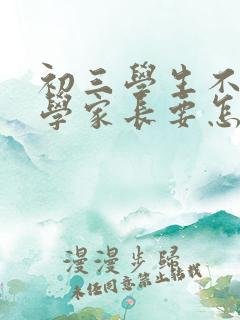 初三學生不
學家長要怎
漫漫步歸
未任同意禁止転載